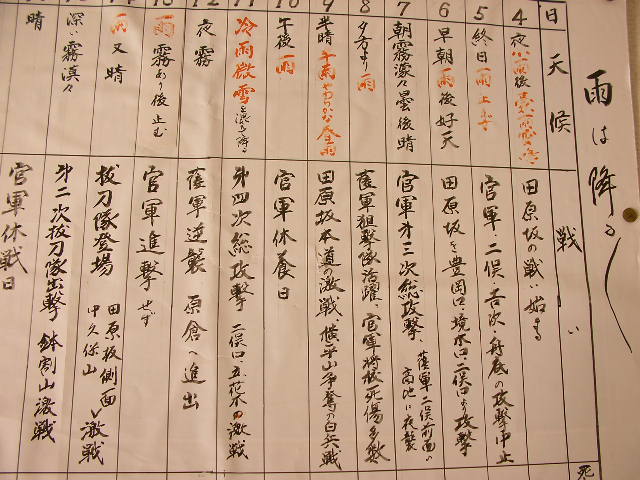 雨は降る
日 天候 戦い
死
4 夜小雨後
田原坂の戦い始まる
5 終日雨止まず
官軍、二俣、吉次、舟底の攻撃中止
6 早朝雨後好天
田原坂を豊岡口・境木口・二俣口より攻撃
7 朝霧濛々曇後晴
官軍才三次総攻撃、薩軍二俣前面の高地に夜襲
8 夕方より雨
薩軍狙撃隊活躍、官軍将校死傷多数
9 半晴 午雨やわらかな春雨
田原坂本道の激戦 横平山争奪の白兵戦
10 午後雨
官軍休養日
11 冷雨微雪を混え降る
才四次総攻撃 二俣口の激戦
12 夜霧
薩軍逆襲 原倉へ進出
13 雨霧あり後止む
官軍進撃せず
雨又晴
抜刀隊登場 田原坂側面 中久保山 激戦
深い霧漠々
才二次抜刀隊出撃 鉢割山激戦
晴
官軍休戦日